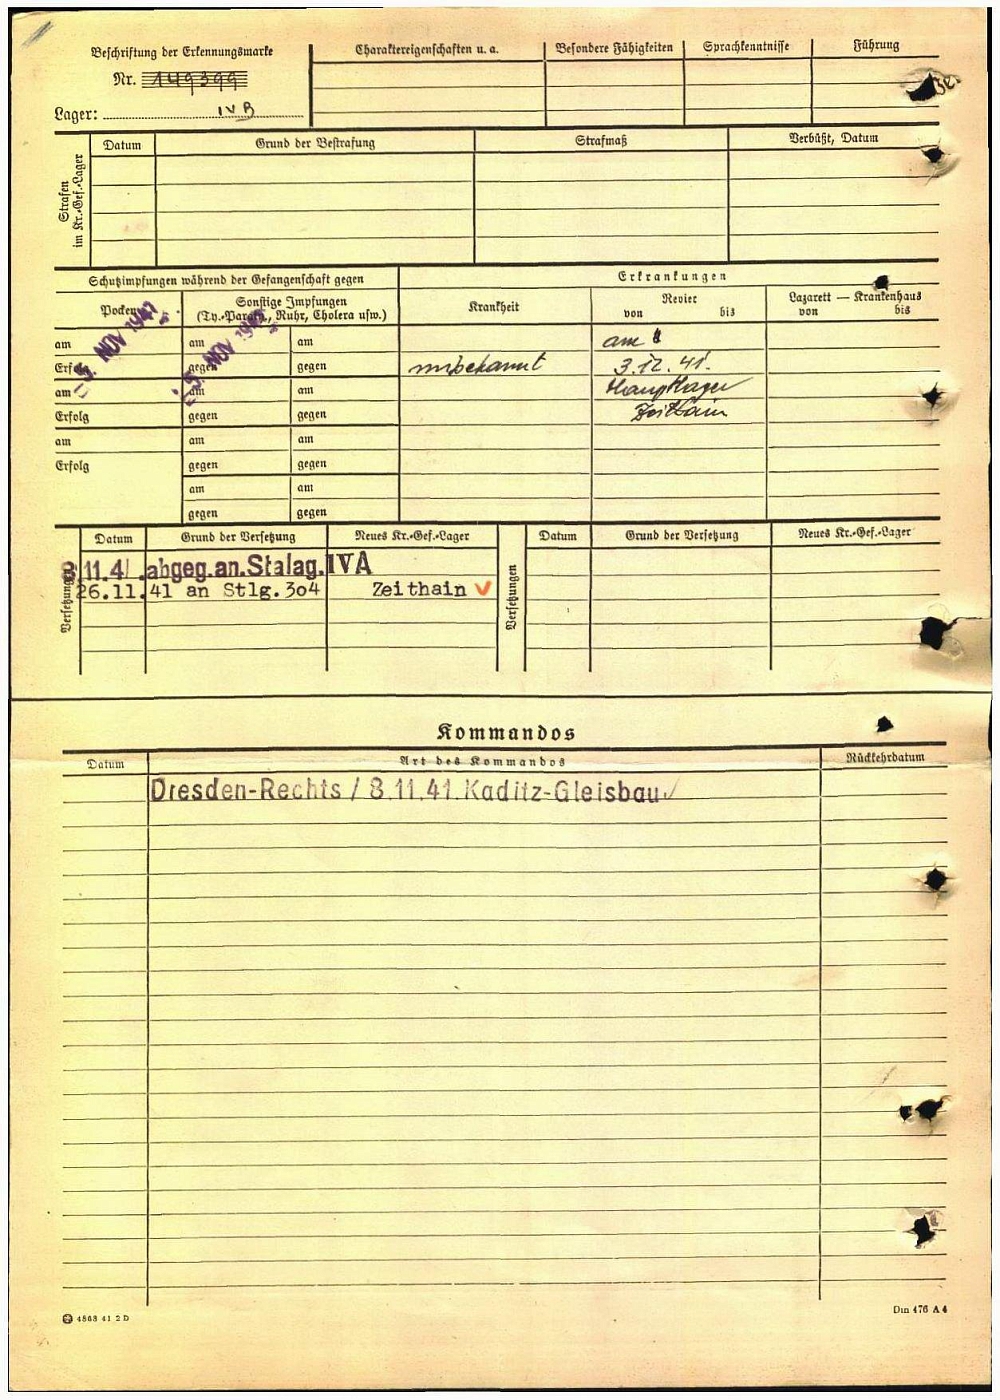 Beschriftung der Erkennungsmarke
Nr. 149399
Lager: IV B
Charaktereigenschaften u. a.
Besondere Fähigkeiten
Sprachkenntnisse
Führung
Strafen
im Kr.-Gef.-Lager
Datum
Grund der Bestrafung
Strafmaß
Verbüßt, Datum
Schutzimpfungen während der Gefangenschaft gegen
Erkrankungen
Pocken
Sonstige Impfungen
(Ty.-Paraty., Ruhr, Cholera usw.)
Krankheit
Revier
von bis
Lazarett — Krankenhaus
von bis
am
am
am
am
Erfolg
gegen
gegen
5. NOV 1941
5. NOV 1941
unbekannt
3.12.41.
am
am
Hauptlager
Erfolg
gegen
gegen
Zeithain
am
am
am
Erfolg
gegen
gegen
am
am
gegen
gegen
Versetzungen
Datum
Grund der Versetzung
Neues Kr.-Gef.-Lager
Versetzungen
Datum
Grund der Versetzung
Neues Kr.-Gef.-Lager
8.11.41.abgeg.an.Stalag.IVA
26.11.41 an Stlg.304 Zeithain
Kommandos
Datum
Art des Kommandos
Rückkehrdatum
Dresden-Rechts / 8.11.41.Kaditz-Gleisbau
4863 41 2 D
Din 476 A 4